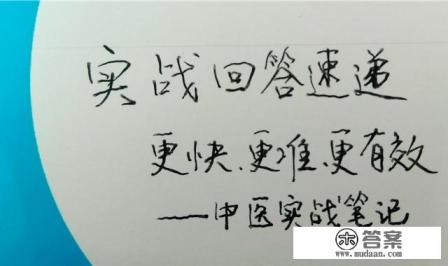 实战回答速递
更快、更准、更有效
——中医实战笔记
木答案
www.mudaan.com